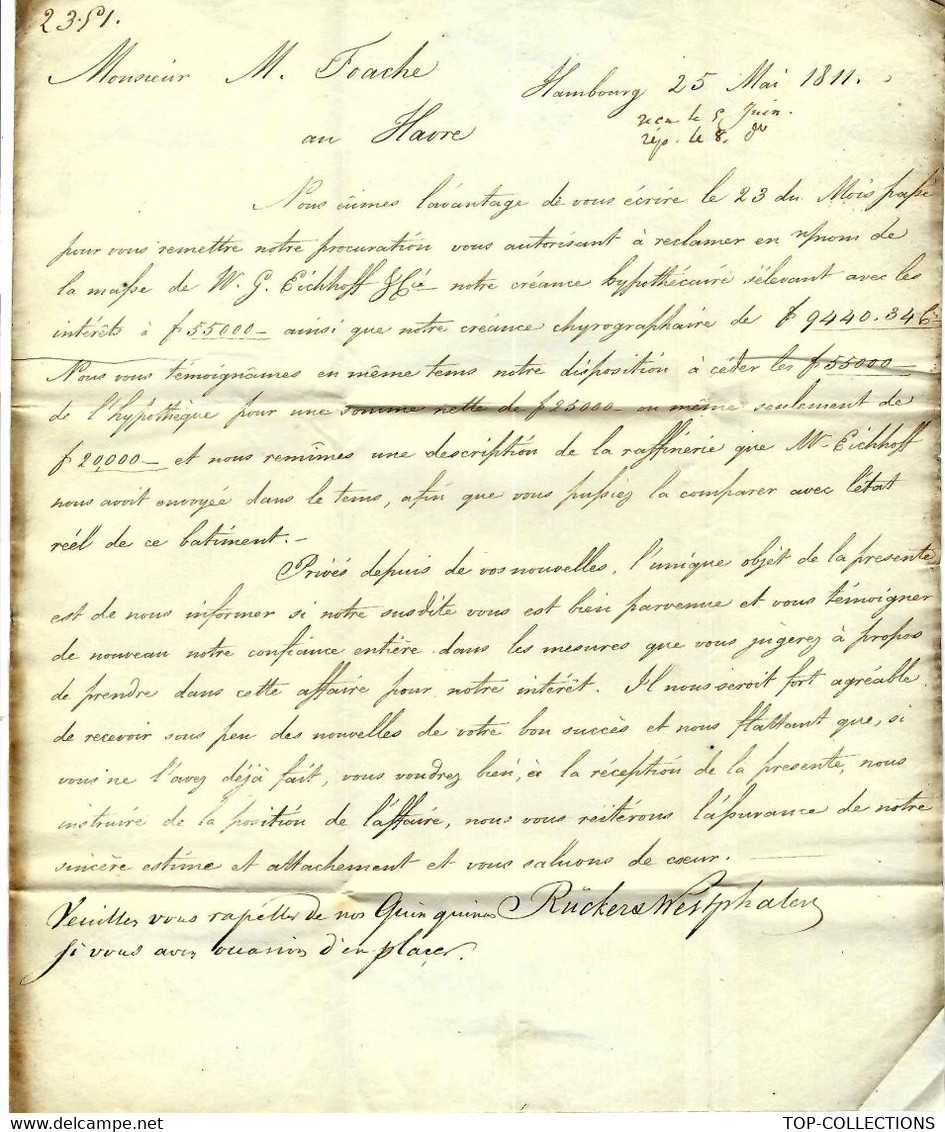 2351.
Monsieur M. Foache
Hambourg 25 Mai 1811.
au Havre
recu le 5 Juin.
rép. le 8. do
Nous eûmes l'avantage de vous écrire le 23 du Mois passé
pour vous remettre notre procuration vous autorisant à reclamer en n/nom de
la masse de W. G. Eichhoff & Cie notre créance hypothécaire s'élevant avec les
intérêts à f 55000 — ainsi que notre créance chyrographaire de f 9440.34 6
Nous vous témoignâmes en même tems notre disposition à céder les f 55000 —
de l'hypothèque pour une somme nette de f 25000 — ou même seulement de
f 20,000 — et nous remîmes une description de la raffinerie que Mr Eichhoff
nous avoit envoyée dans le tems, afin que vous pussiez la comparer avec l'état
réél de ce batiment. —
Privés depuis de vos nouvelles, l'unique objet de la presente
est de nous informer si notre susdite vous est bien parvenue et vous témoigner
de nouveau notre confiance entière dans les mesures que vous jugerez à propos
de prendre dans cette affaire pour notre intérêt. Il nous seroit fort agréable
de recevoir sous peu des nouvelles de votre bon succès et nous flattant que, si
vous ne l'avez déjà fait, vous voudrez bien, à la réception de la presente, nous
instruire de la position de l'affaire, nous vous réitérons l'assurance de notre
sincère estime et attachement et vous saluons de cœur. —
Veuillez vous rapeller de nos Quinquinas Rückers Westphalen
si vous avez occasion d'en placer.
TOP-COLLECTIONS